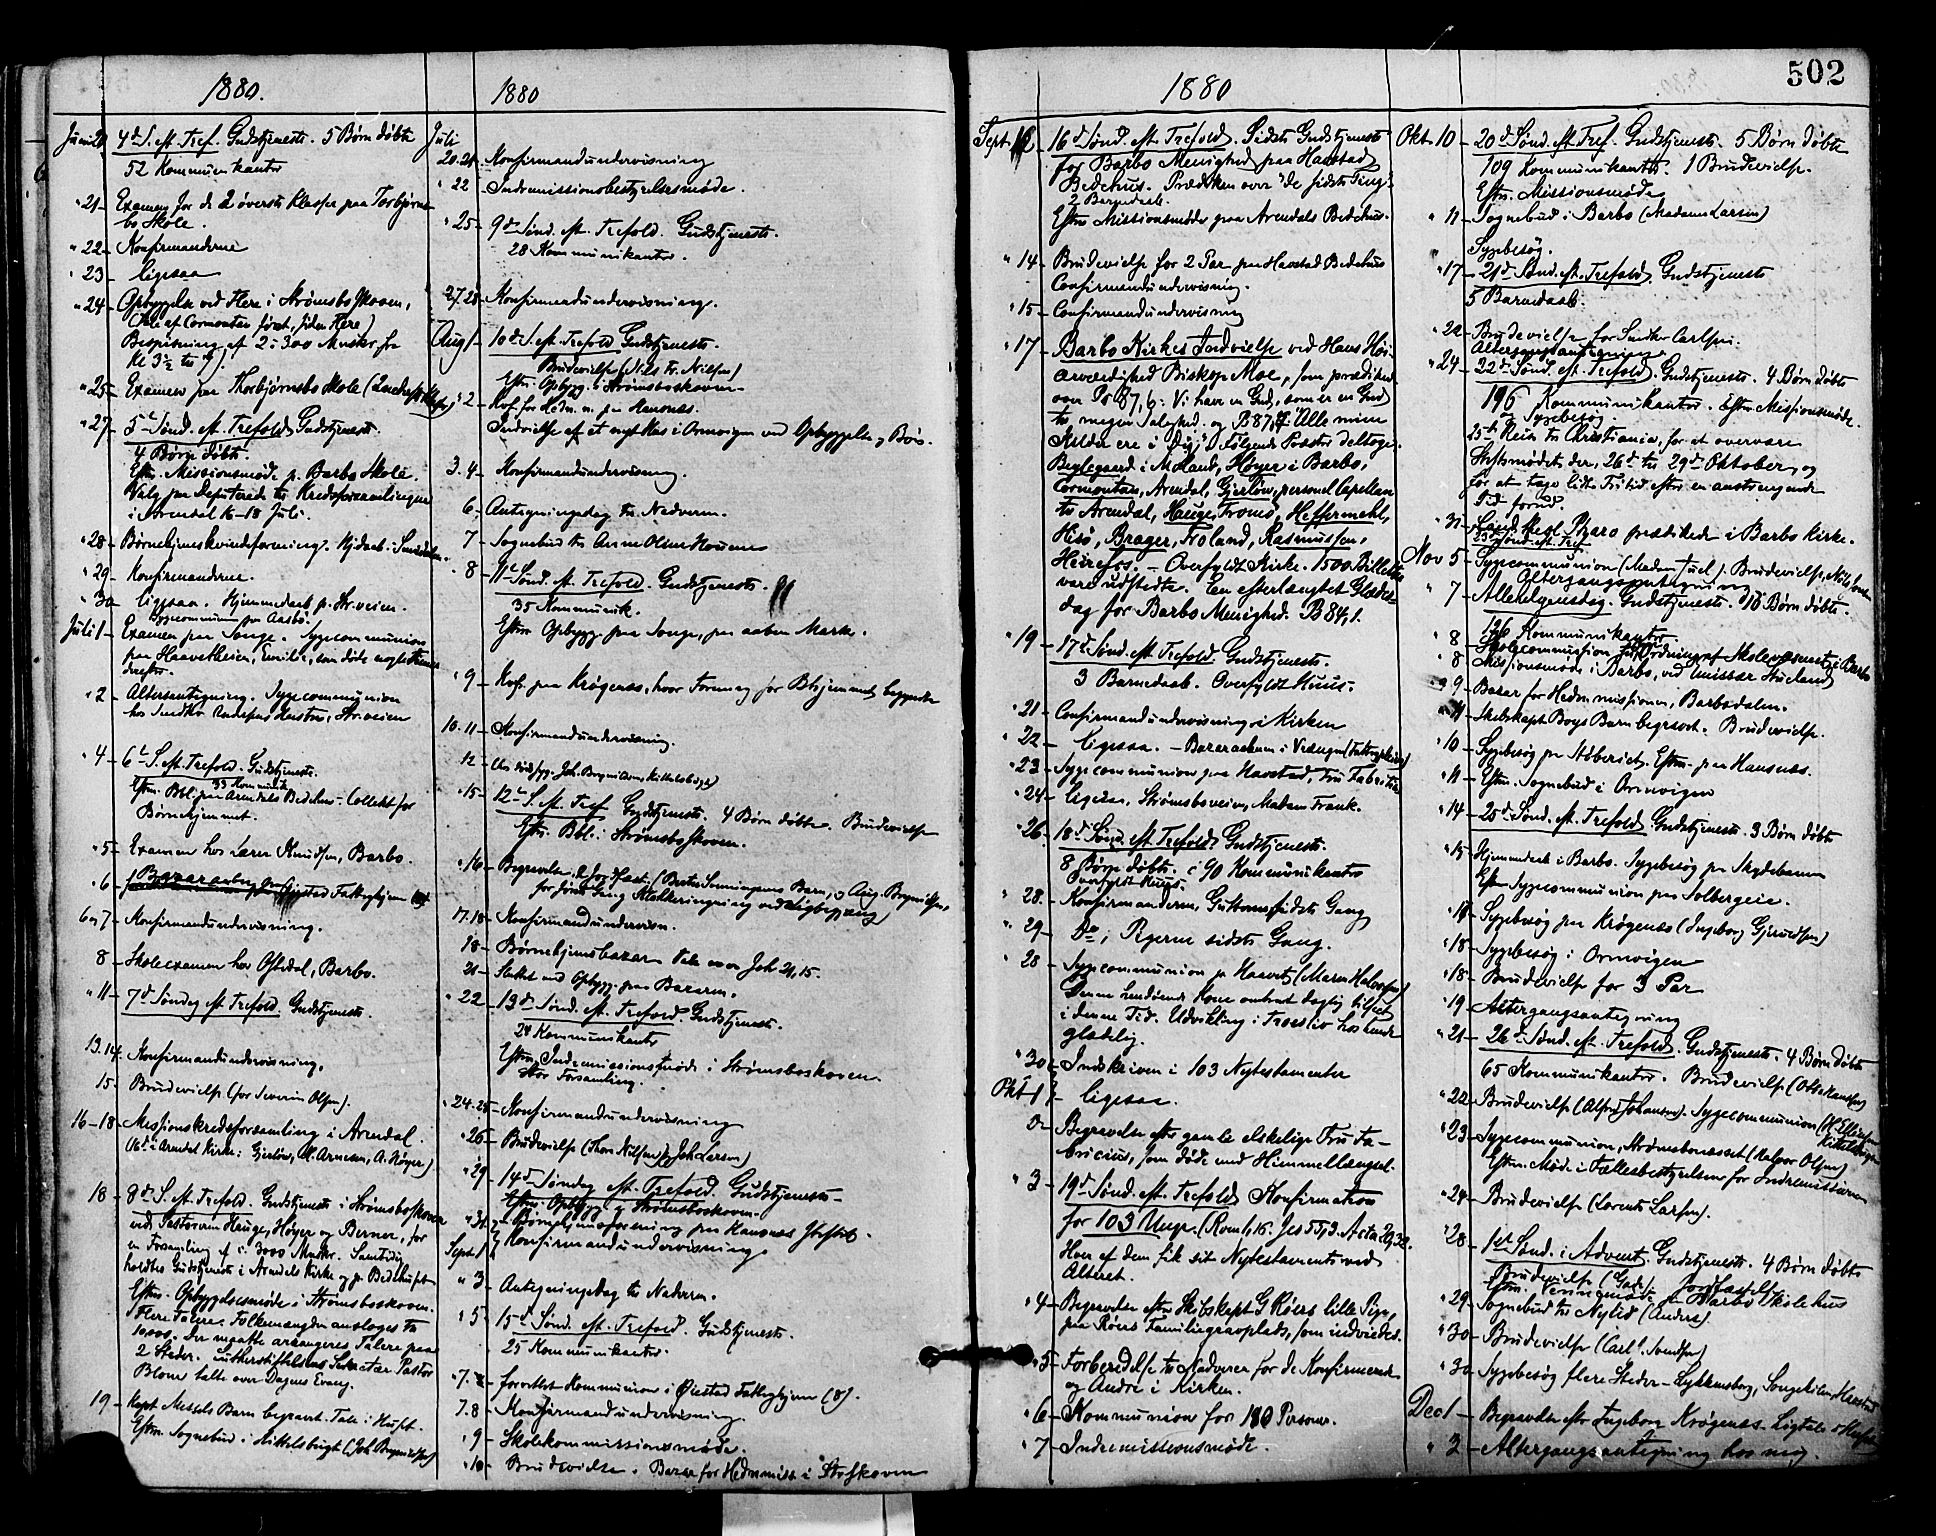 1880.
Juni 20 4de S. eft. Tref. Gudstjeneste. 5 Børn døbte
52 Kommunikanter
" 21 Examen for de 2 øverste Klasser paa Torbjørns-
bo Skole.
" 22 Konfirmanderne
" 23 ligesaa
" 24 Opbyggelse ved Flere i Strømsboskoven,
Bespisning af 2 à 300 Msker fra
Kl 3½ til
" 25 Examen paa Thorbjørnsbo Skole
" 27 5te Sønd. eft. Trefold. Gudstjeneste.
4 Børn døbte.
Eftm. Missionsmøde p. Barbo Skole.
Valg paa Deputerede til Kredsforsamlingen
i Arendal 16-18 Juli.
" 28 Børnehjemskvindeforening. Hjdaab i
" 29 Konfirmanderne.
" 30 ligesaa. Hjemmedaab p. Str.veien.
Sygecommunion paa Aasbo.
Juli 1 Examen paa Songe. Sygecommunion
paa Haavetheien, Emilie, som døde
derefter.
" 2 Altersantegning. Sygecommunion
hos Snedker Str.veien
" 4 6te S. eft. Trefold. Gudstjeneste.
33 Kommunik.
Eftm. Bbl. paa Arendals Bedehus - Collekt for
Børnehjemmet.
" 5 Examen hos Lærer Knudsen, Barbo.
" 6 Øiestad Fattighjem
6 og 7 Konfirmandundervisning.
8 Skoleexamen hos Ofstedal, Barbo.
" 11 7de Søndag eft. Trefold. Gudstjeneste.
13.14. Konfirmandundervisning.
15 Brudevielse (for Severin Olsen).
16-18 Missionskredsforsamling i Arendal.
(16de i Arendal Kirke: Gjerløw, M. Arnesen, A. Høyer)
18 8de S. eft. Trefold. Gudstjeneste i Strømsboskoven
ved Pastorerne Hauge, Høyer og Berner, for
en Forsamling af c. 3000 Msker. Samtidig
holdtes Gudstjeneste i Arendals Kirke og p. Bedehuset
Eftm. Opbyggelsesmøde i Strømsboskoven.
Flere Talere. Folkemængden ansloges til
10000. Der maatte arrangeres Talere paa
2 Steder. Lutherstiftelsens Sekretær Pastor
Blom talte over Dagens Evang.
19 Kapt. Messels Barn begravet. Tale i Huset.
Eftm. Sognebud i Kittelsbugt
1880
Juli
20.21 Konfirmandundervisning
" 22 Indremissionsbestyrelsesmøde.
" 25 9de Sønd. eft. Trefold. Gudstjeneste.
28 Kommunikanter.
27.28 Konfirmandundervisning.
Aug 1 10de S. eft. Trefold Gudstjeneste.
Brudevielse (Nils Fr. Nilsen)
Eftm. Opbygg. i Strømsboskoven
" 2 Kvf. for Hedn. m. paa
Indvielse af et nyt Hus i Ormvigen ved Opbyggelse og Bøn.
3.4 Konfirmandundervisning.
6 Antegningsdag til Nadveren.
7 Sognebud til Anne Olsen
" 8 11te Sønd. eft. Trefold. Gudstjeneste.
35 Kommunik.
Eftm Opbygg. paa Songe, paa aaben Mark.
" 9 Kvf. paa Krøgenæs, hvor Forening for Bhjemmet begyndte
10.11 Konfirmandundervisning.
12
" 15 12te S. eft. Tref. Gudstjeneste. 4 Børn døbte. Brudevielse
Eftm. Bbl. i Strømsboskoven.
" 16 Begravelse
for første Gang Klokkeringning ved Ligbegjæng
17.18 Konfirmandundervisn.
18 Børnehjemsbazar. Tale over Joh 21,15.
21 Sluttet med Opbygg. paa Bazaren.
" 22 13de Sønd. eft. Trefold. Gudstjeneste.
24 Kommunikanter
Eftm. Indremissionsmøde i Strømsboskoven.
Stor Forsamling.
" 24.25 Konfirmandundervisning
" 26 Brudevielse (Thor Nilsen) Joh Larsen)
" 29 14de Søndag eft. Trefold. Gudstjeneste
Eftm. Opbygg. i Strømsboskoven.
" 31 Børnehjemsforening paa
Sept. 1 Konfirmandundervisning.
" 3 Antegningsdag til Nadveren.
" 5 15de Sønd. eft. Trefold. Gudstjeneste.
25 Kommunikanter.
" 7. forrettet Kommunion i Øiestad Fattighjem (8).
7.8 Konfirmandundervisning.
" 9 Skolekommissionsmøde.
" 10 Brudevielse. Bazar for Hednmiss. i Skoven
1880
502
Sept. 12 16de Sønd. eft. Trefold. Sidste Gudstjeneste
for Barbo Menighed paa Havstad
Bedehus. Prædiken over "de sidste Ting".
2 Barnedaab.
Eftm Missionsmøde paa Arendals Bedehus.
" 14 Brudevielse for 2 Par paa Havstad Bedehus
Confirmandundervisning.
" 15 Confirmandundervisning
" 17 Barbo Kirkes Indvielse ved Hans Høi-
ærværdighed Biskop Moe, som prædikede
over Ps 87,6: Vi have en Gud, som er en Gud
til megen Salighed. og Ps 87,7 "Alle mine
Kilder ere i Dig". Følgende Præster deltoge:
Beglegaard i Moland, Høyer i Barbo,
Cormontan, Arendal, Gjerløw, personel Capellan
til Arendal, Hauge, Tromø, Heffermehl,
Hisø, Brager, Froland, Rasmussen,
Heirefos. - Overfyldt Kirke. 1500 Billetter
vare udstedte. En efterlængtet Glædes-
dag for Barbo Menighed. Ps 84,1.
" 19 17de Sønd. eft. Trefold. Gudstjeneste.
3 Barnedaab. Overfyldt Huus.
" 21 Confirmandundervisning i Kirken
" 22 ligesaa.
" 23 Sygecommunion paa Havstad, Fru Fabritius
" 24 ligesaa, Strømsboveien, Madam Frank.
" 26. 18de Sønd. eft. Trefold. Gudstjeneste.
8 Børn døbte. c 90 Kommunikanter
Overfyldt Huus.
" 28. Konfirmanderne, Guttenes sidste Gang
" 29 Do; Pigerne sidste Gang.
" 28 Sygecommunion p. Haavet (Maren Halvorsen)
Denne lendøende Kone omtrent daglig tilseet
i denne Tid. Udvikling i Troesliv hos hende
glædelig.
" 30 Indskriven i 103 Nytestamenter
Okt 1 ligesaa.
2 Begravelse efter gamle elskelige Fru Fa-
bricius, som døde med Himmellængsel.
" 3 19de Sønd. eft. Trefold. Konfirmation
for 103 Unge. (Rom 1,16. Jes 55,3. Acta 20,32.
Hver af dem fik sit Nytestamente ved
Alteret.
" 4 Begravelse efter Skibskapt G Røers lille Pige,
paa Røers Familiegravplads, som indviedes.
" 5 Forberedelse til Nadveren for de Konfirmerede
og Andre i Kirken.
" 6 Kommunion for 180 Personer.
" 7 Indremissionsmøde.
Okt. 10 20de Sønd. eft. Tref. Gudstjeneste. 5 Børn døbte
109 Kommunikanter. 1 Brudevielse.
Eftm. Missionsmøde
" 11 Sognebud i Barbo (Madam Larsen)
Sygebesøg.
" 17 21de Sønd. eft. Trefold. Gudstjeneste
5 Barnedaab.
" 22 Brudevielse for Snedker Carlsen.
Altergangsantegning
" 24 22de Sønd. eft. Trefold. Gudstjeneste. 4 Børn døbte
196 Kommunikanter. Eftm. Missionsmøde
og Sygebesøg
25de Reise til Christiania, for at overvære
Stiftsmødet der, 26de til 29de Oktober, og
for at tage lidt Fritid efter en anstrengende
Tid forud.
" 31 Cand. theol. Bzaro prædikede i Barbo Kirke.
23de Sønd. eft. Tref
Nov 5 Sygecommunion (Madam Juel). Brudevielse,
Altergangsantegning
" 7 Allehelgensdag. Gudstjeneste. 10 Børn døbte.
126 Kommunikanter.
" 8 Skolecommission for Ordning af Skolevæsenet i Barbo
" 8 Missionsmøde i Barbo, ved Emissær
" 9 Bazar for Hednmissionen, Barbodalen.
" 9 Skibskapt Boys Barn begravet. Brudevielse.
" 10 Sygebesøg paa Eftm. paa
" 11 Eftm. Sognebud i Ormvigen
" 14 25de Sønd. eft. Trefold. Gudstjeneste. 3 Børn døbte
" 15 Hjemmedaab i Barbo. Sygebesøg paa Skydebanen
Eftm Sygecommunion paa Solbergeie.
" 18 Sygebesøg paa Krøgenæs
" 18 Sygebesøg i Ormvigen
" 18 Brudevielse for 3 Par
" 19 Altergangsantegning
" 21 26de Sønd. eft. Trefold. Gudstjeneste. 4 Børn døbte
65 Kommunikanter. Brudevielse
" 22 Brudevielse (Alfred Johansen). Sygecommunion
" 23 Sygecommunion, Strømsbonæset (Halvor Olsen)
Eftm. Møde i Fællesbestyrelsen for Indremissionen
" 24 Brudevielse (Lorents Larsen).
" 28 1ste Sønd. i Advent. Gudstjeneste. 4 Børn døbte
Brudevielse
Eftm. Barbo Skolehus
" 29 Sognebud til Nylid (Andrea).
" 30 Brudevielse
" 30 Sygebesøg flere Steder - Lykkensborg, Songekilen,
Dec 1 Begravelse efter Ingeborg Krøgenæs. Ligtale i Huset
" 3 Altergangsantegning hos mig.